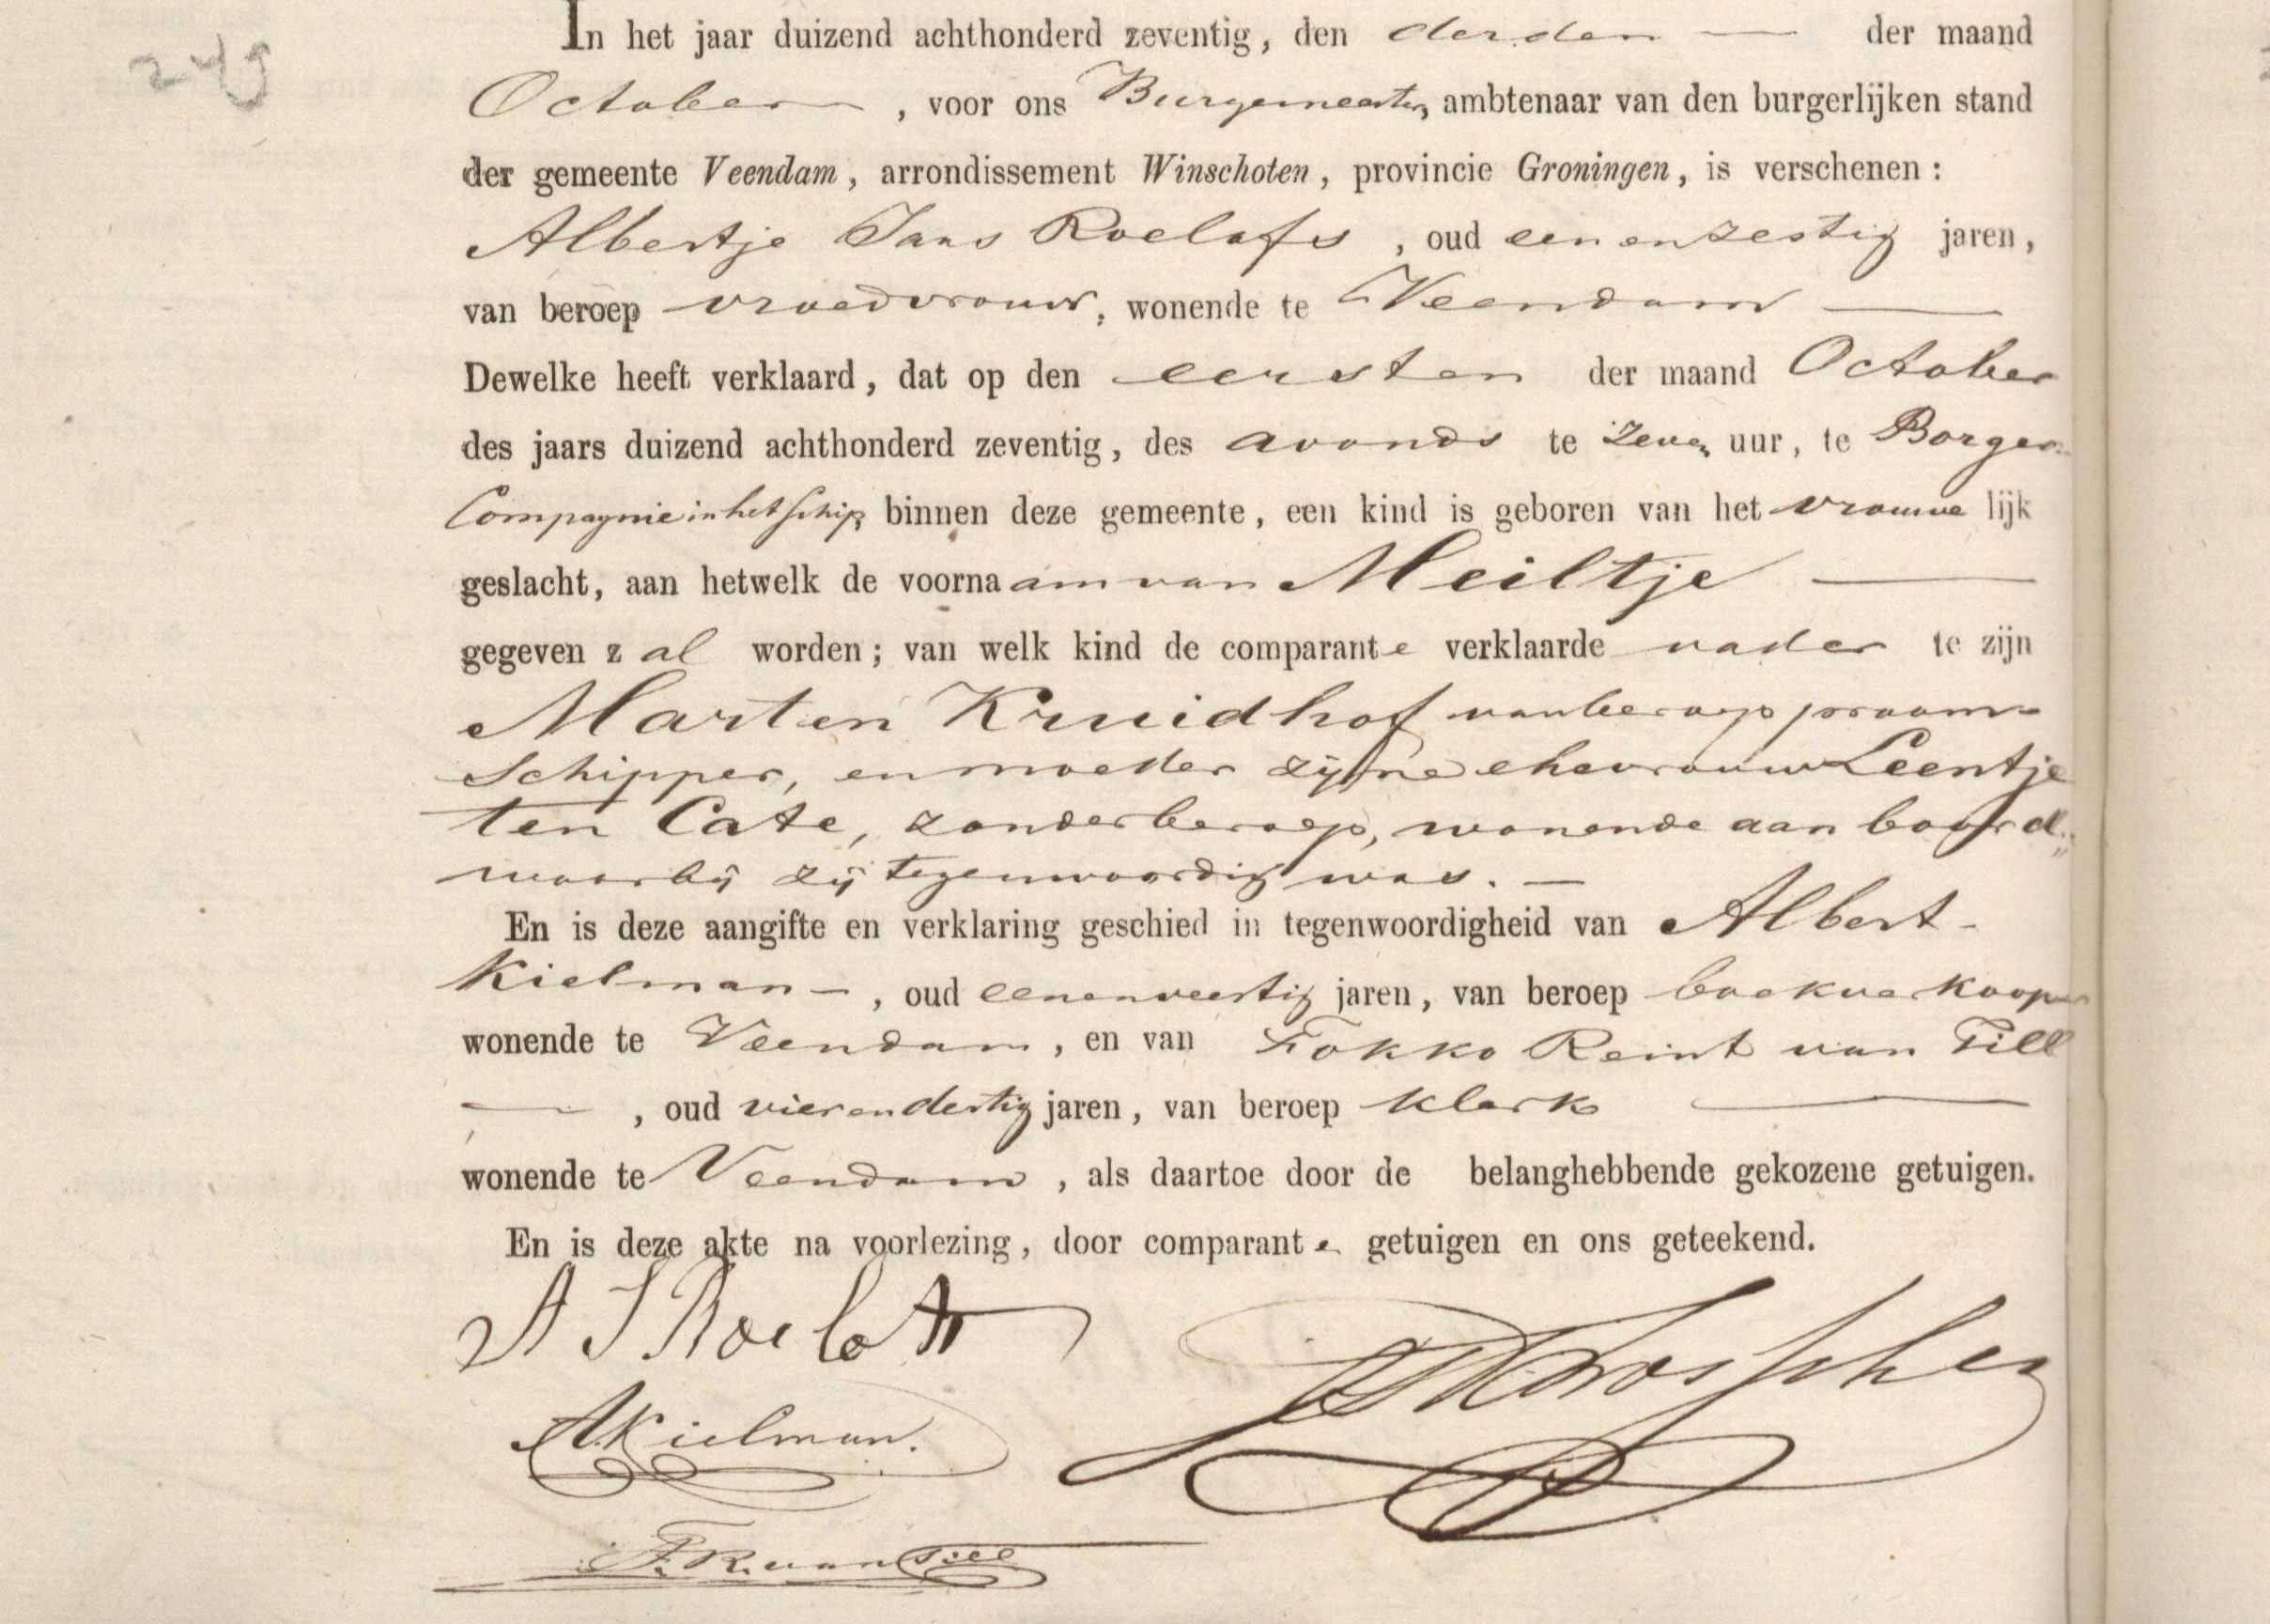 249
In het jaar duizend achthonderd zeventig, den derden — der maand
October, voor ons Burgemeester, ambtenaar van den burgerlijken stand
der gemeente Veendam, arrondissement Winschoten, provincie Groningen, is verschenen:
Albertje Jans Roelofs, oud een en zestig jaren,
van beroep vroedvrouw, wonende te Veendam —
Dewelke heeft verklaard, dat op den eersten der maand October
des jaars duizend achthonderd zeventig, des avonds te zeven uur, te Borger
Compagnie in het schip binnen deze gemeente, een kind is geboren van het vrouwelijk
geslacht, aan hetwelk de voornaam van Meiltje —
gegeven zal worden; van welk kind de comparante verklaarde vader te zijn
Marten Kruidhof van beroep praam-
schipper, en moeder zijne ehevrouw Leentje
ten Cate, zonder beroep, wonende aan boord
waarbij zij tegenwoordig was. —
En is deze aangifte en verklaring geschied in tegenwoordigheid van Albert
Kielman —, oud eenenveertig jaren, van beroep boekverkooper
wonende te Veendam, en van Fokko Reint van Till
—, oud vierendertig jaren, van beroep klerk —
wonende te Veendam, als daartoe door de belanghebbende gekozene getuigen.
En is deze akte na voorlezing, door comparante getuigen en ons geteekend.
A J Roelofs
A Kielman.
F. R. van Till